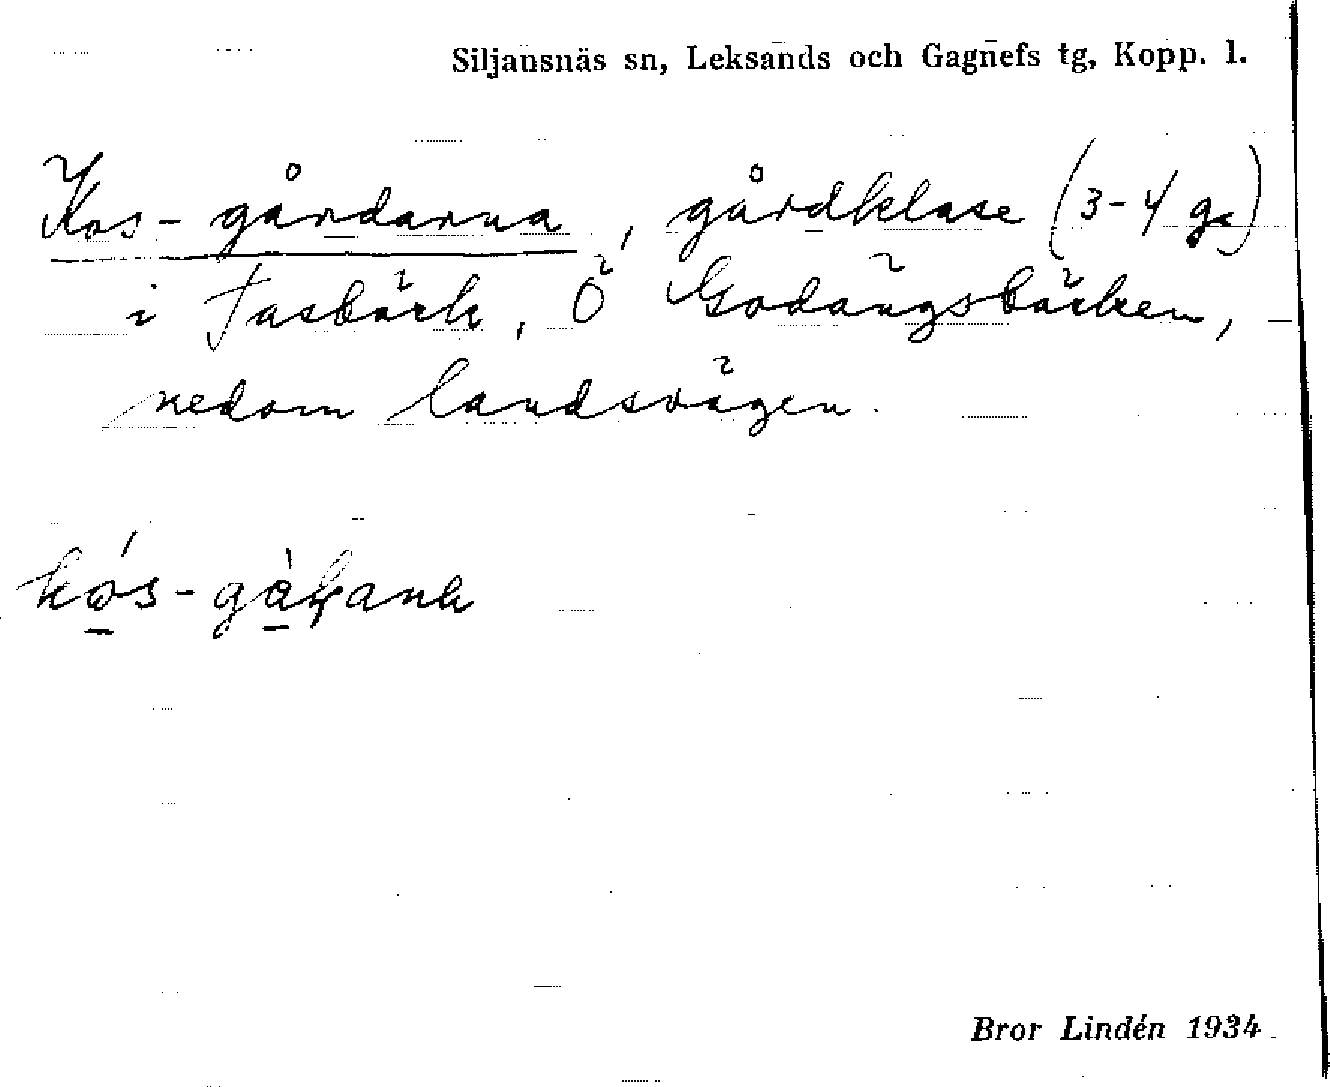 Siljansnäs sn, Leksands och Gagnefs tg, Kopp. l.
Kos-gårdarna, gårdklase (3-4 gr)
i Fasbäck, Ö Godängsbäcken,
nedom landsvägen.
Bror Lindén 1934